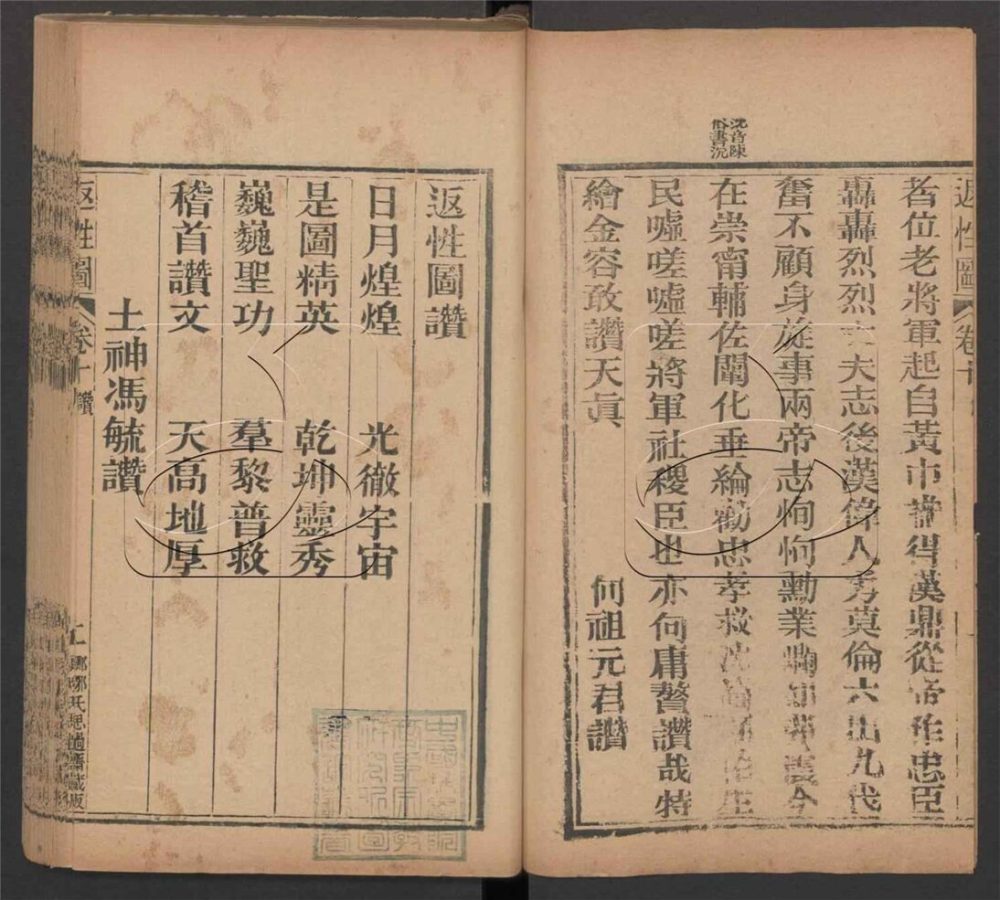 返性圖 卷十
耆位老將軍起自黃巾誰得漢鼎從帝作忠臣
轟轟烈烈丈夫志後漢偉人勇莫倫六出九代
奮不顧身旋事兩帝志恂恂勳業
在崇甯輔佐闡化垂綸勸忠孝救沈淪
民噓嗟噓嗟將軍社稷臣也亦何庸贅讚哉特
繪金容敢讚天眞
何祖元君讚
沈音陳
俗書沉
返性圖讚
日月煌煌 光徹宇宙
是圖精英 乾坤靈秀
巍巍聖功 羣黎普救
稽首讚文 天高地厚
土神馮毓讚
返性圖 卷十 讚